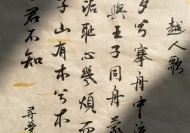 越人歌
夕兮搴舟中
與王子同舟蒙
詬恥心幾煩而
子山有木兮木
君不知